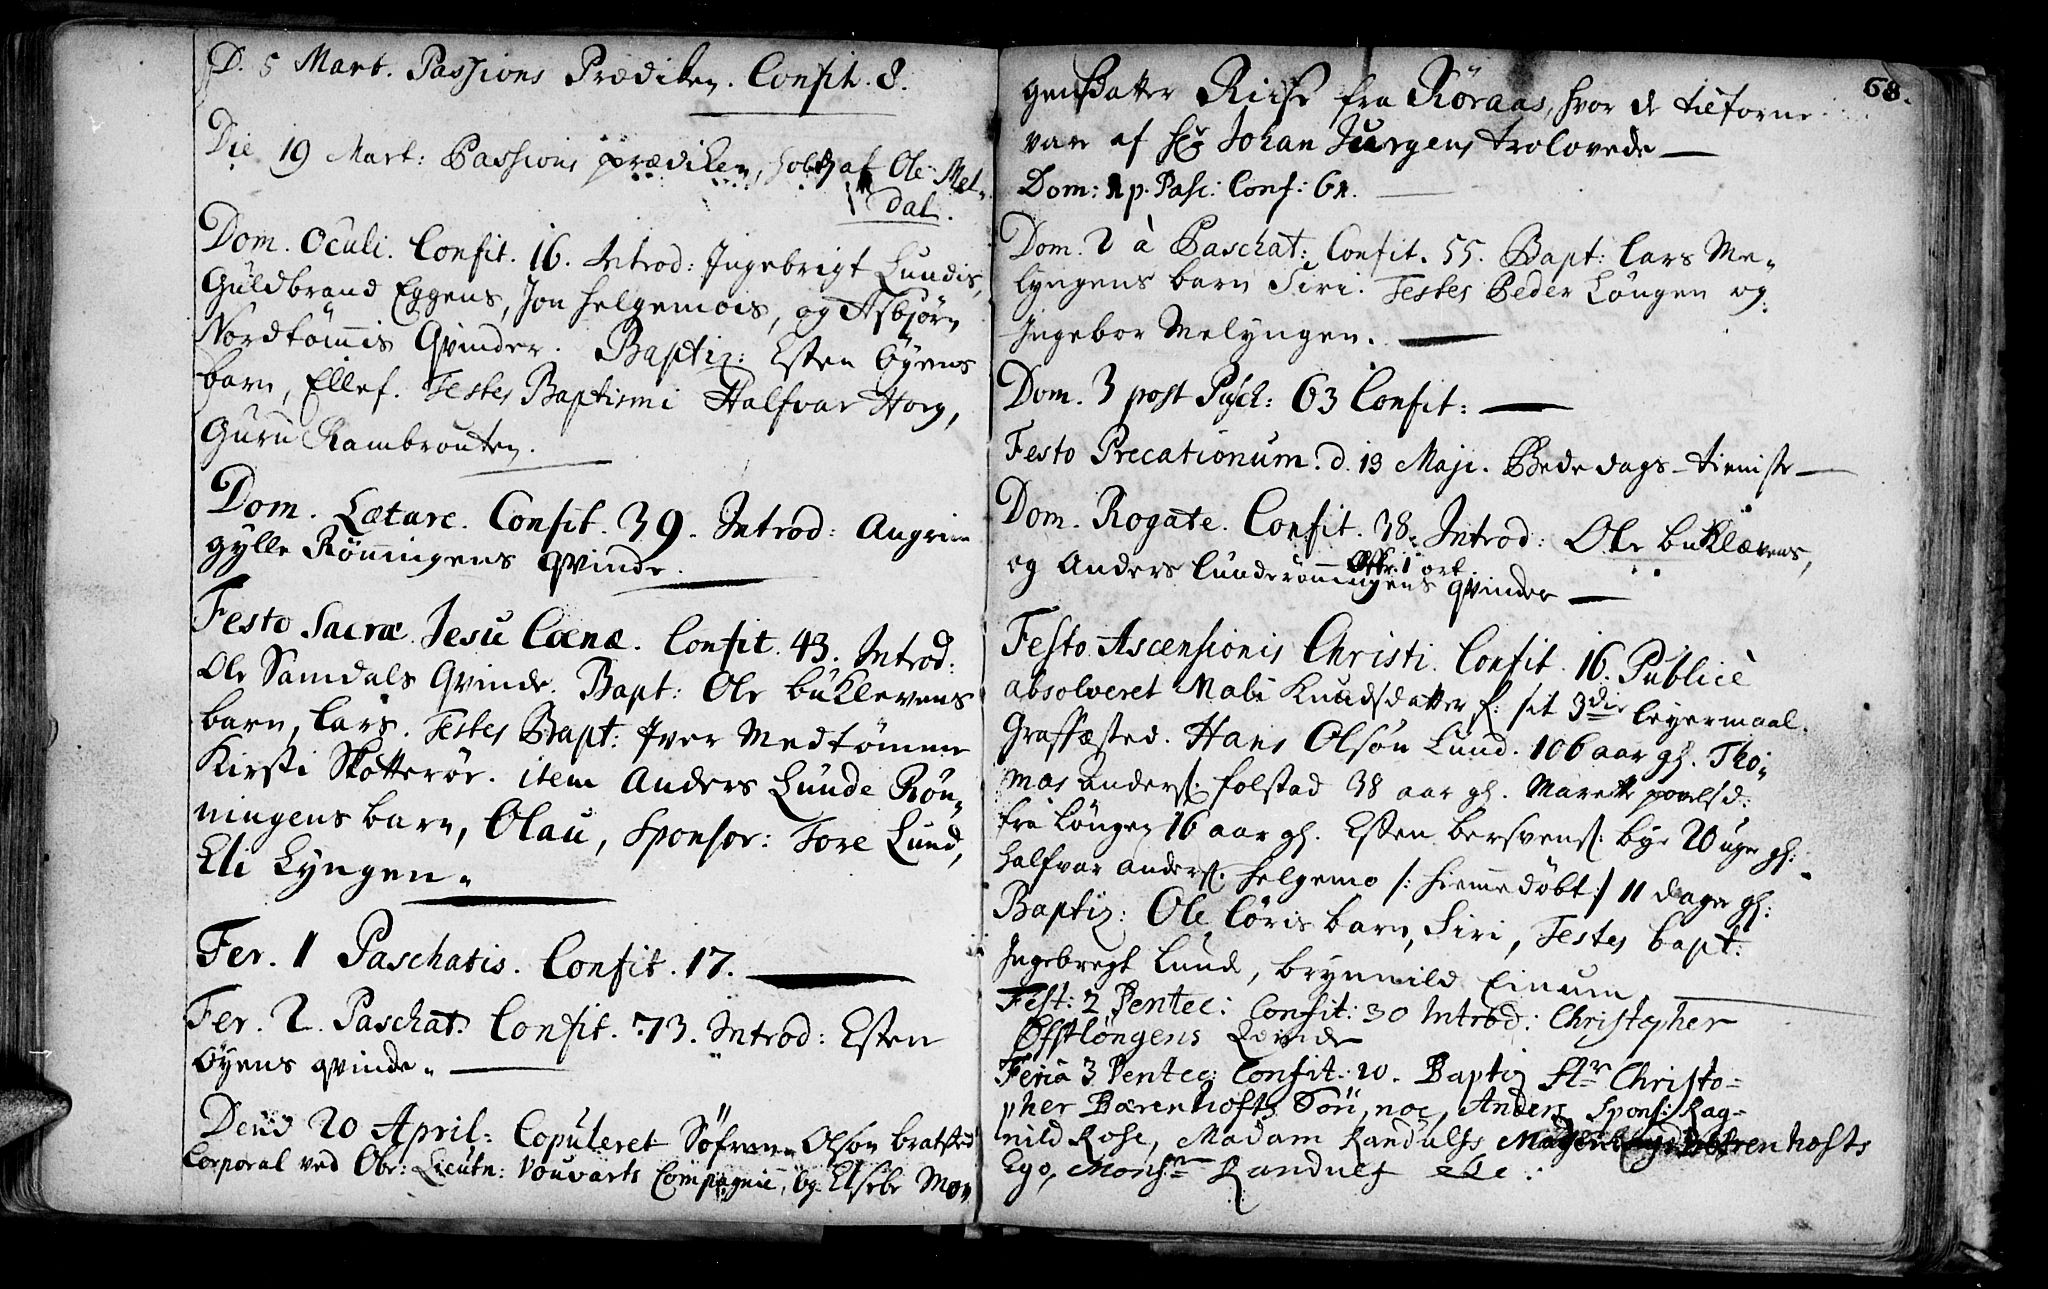 D. 5 Mart. Passions Prædiken. Confit. 8.
Die 19 Mart: Passions prædiken, holdt af Ole Mel-
dal.
Dom. Oculi. Confit. 16. Introd: Ingebrigt Lundis,
Guldbrand Eggens, Jon Helgemois, og Asbjørn
Nordtømis Qvinder. Baptiz: Esten Øyens
barn, Ellef. Testes Baptismi Halfvar Hoeg,
Guru Rambrouten.
Dom. Lætare. Confit. 39. Introd: Angrim
gylle Rønningens qvinde.
Festo Sacræ Jesu Cænæ. Confit. 43. Introd:
Ole Samdals Qvinde. Bapt: Ole buklevens
barn, Lars. Testes Bapt: Iver Medtømme
Kirsti Skotterør. item Anders Lunde Røn-
ningens barn, Olau, Sponsor: Tore Lund,
Eli Lyngen.
Fer. 1 Paschatis. Confit. 17.
Fer. 2. Paschat. Confit. 73. Introd: Esten
Øyens qvinde.
Dend 20 April: Copuleret Søfren Olsøn bratsted
Corporal ved Obr: Lieutn: Vouvarts Compagnie, og Elsebe Mor
68.
gensdatter Riise fra Røraas, hvor de tilforne
vare af Hr Johan Jurgens trolovede
Dom: 1 p. Pasc: Conf: 61.
Dom. 2 à Paschat: Confit. 55. Bapt: Lars Me-
lyngens barn Siri. Testes Peder Løngen og
Ingebor Melyngen.
Dom. 3 post Pasch: 63 Confit:
Festo Precationum. d. 13 Maji. Bededags-tieniste
Dom. Rogate. Confit. 38. Introd: Ole buklævens,
Offr. 1 ort.
og Anders Lunderønningens qvinder
Festo Ascensionis Christi. Confit. 16. Publicè
absolveret Mali Knudsdatter f: sit 3die leyermaal.
Graffæsted. Hans Olsøn Lund. 106 aar gl. Tho-
mas Anders: folstad 38 aar gl. Marette poelsd.
fra Løngen 16 aar gl. Esten bersvens: bye 20 uger gl:
Halfvar Anders: Helgemo /: hiemmedøbt :/ 11 dager gl:
Baptiz: Ole Løris barn, Siri, Testes bapt:
Ingebregt Lund, brynnild Einum
Fest: 2 Pentec: Confit: 30 Introd: Christopher
Offtløngens Qvinde
Feria 3 Pentec: Confit: 20. Baptiz Str Christo-
pher Bærenhofts Søn, noe, Anders Spons: Rag-
nild Rose, Madam Randulfs Bærenhofts
Ego, Monsr Randulf